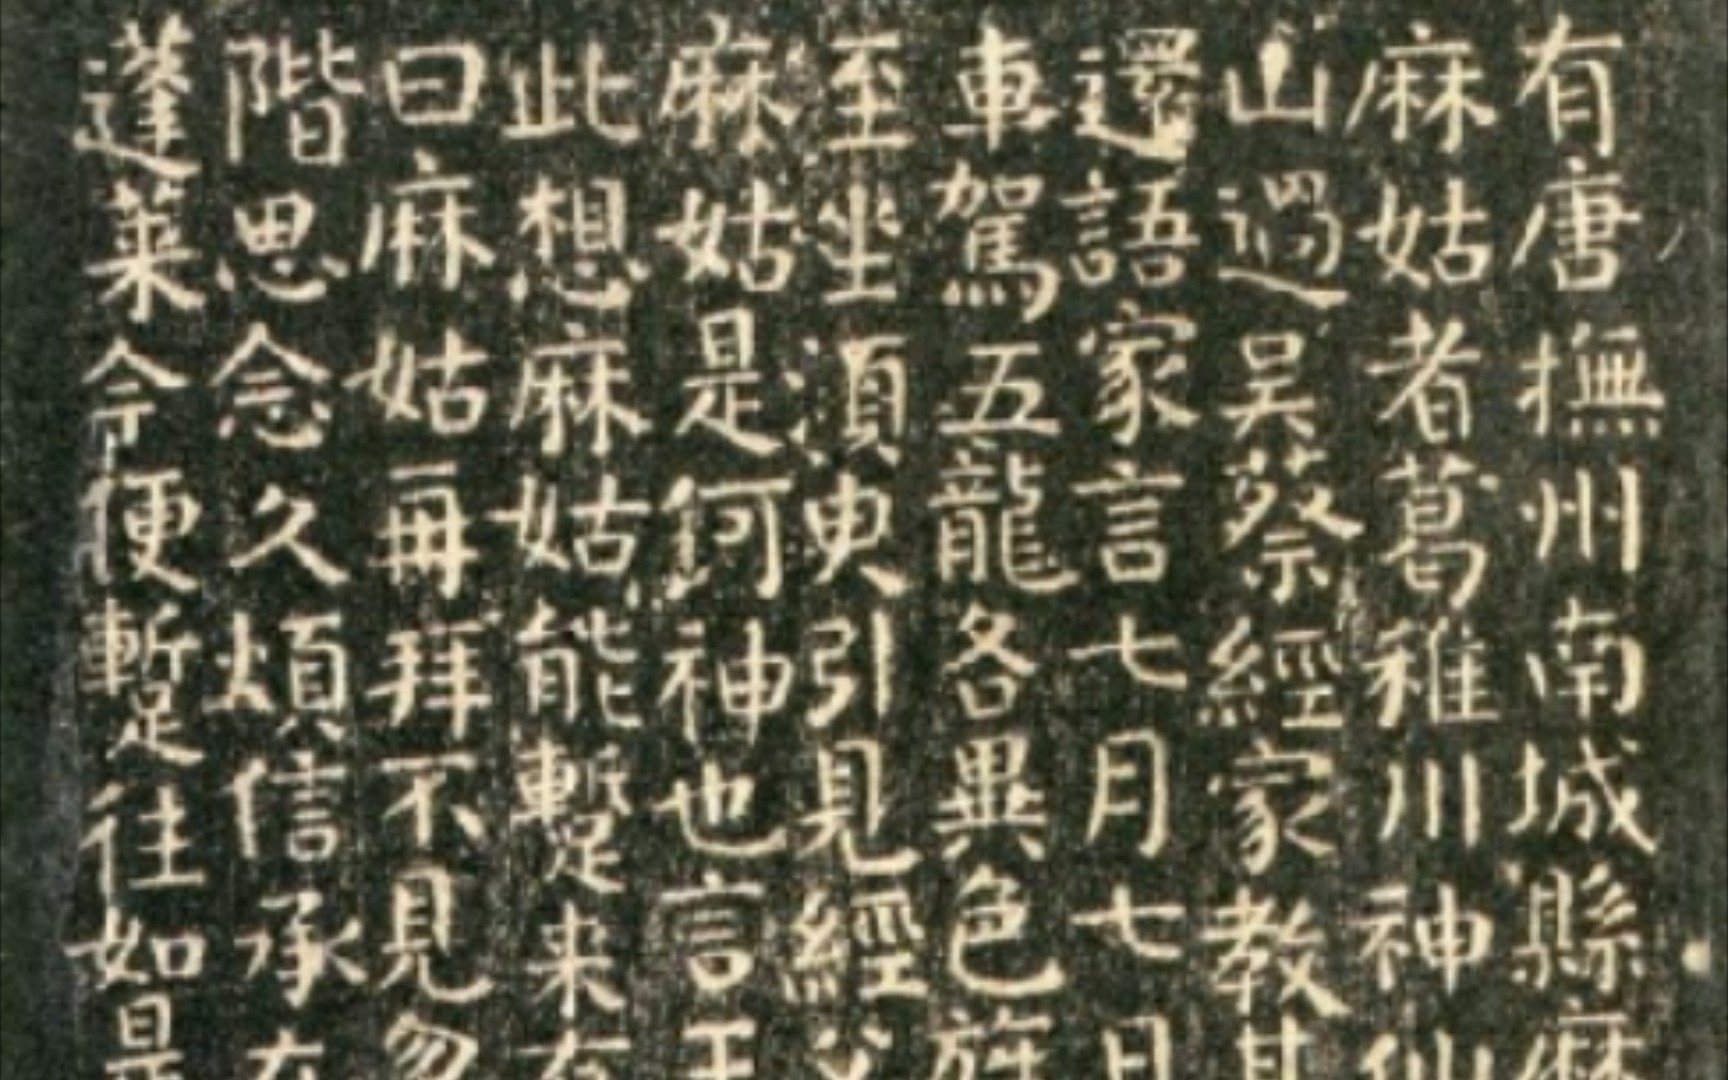 有唐撫州南城縣麻
麻姑者葛稚川神仙
山過吳蔡經家教其
還語家言七月七日
車駕五龍各異色旌
至坐須臾引見經父
麻姑是何神也言王
此想麻姑能蹔来有
曰麻姑再拜不見忽
階思念久煩信承在
蓬萊今便蹔往如是